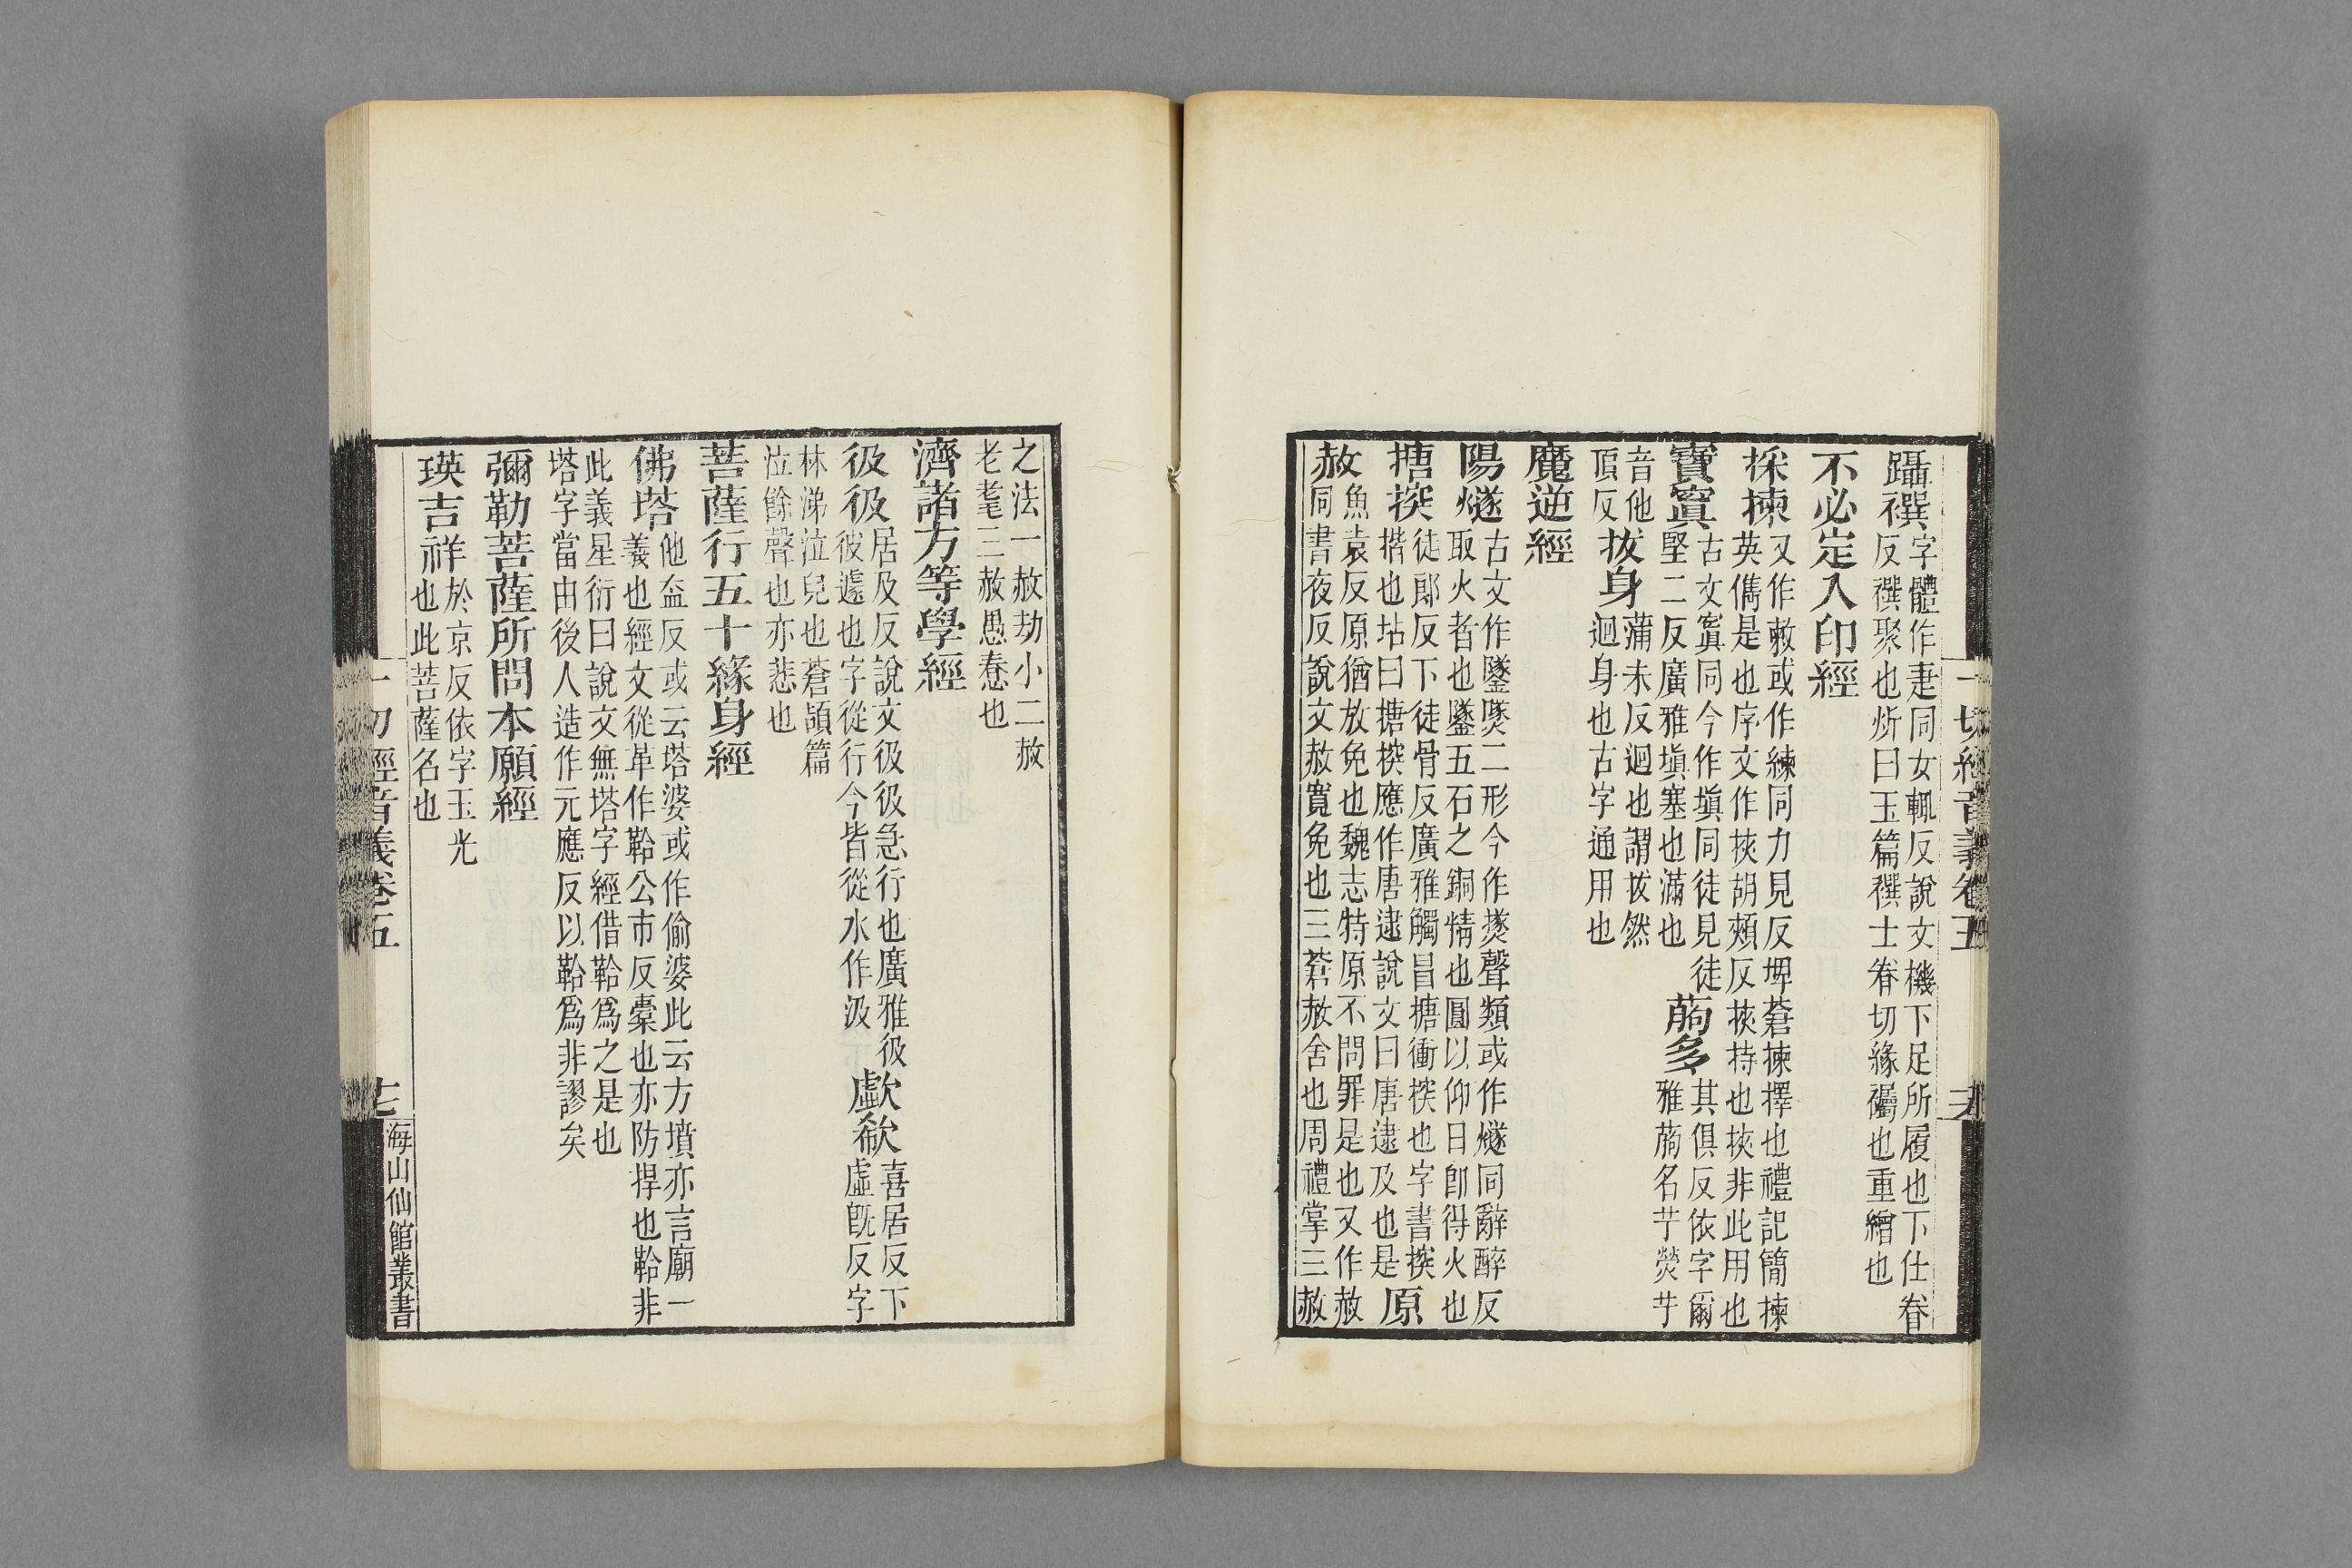 一切經音義卷五
躡襈字體作疌同女輒反說文機下足所履也下仕眷
反襈聚也炘曰玉篇襈士眷切緣襡也重繒也
不必定入印經
採揀又作敕或作練同力見反埤蒼揀擇也禮記簡揀
英儁是也序文作挾胡頰反挾持也挾非此用也
寶窴古文窴同今作塡同徒見徒
堅二反廣雅塡塞也滿也
蒟多其俱反依字爾
雅蒟名芋熒芋
音他
頂反
拔身蒲末反迴也謂拔然
迴身也古字通用也
魔逆經
陽燧古文作鐆㷭二形今作㸂聲類或作燧同辭醉反
取火者也鐆五石之銅精也圓以仰日卽得火也
搪揬徒郎反下徒骨反廣雅觸冒搪衝揬也字書揬
揩也坫曰搪揬應作唐逮說文曰唐逮及也是
原
赦魚袁反原猶放免也魏志特原不問罪是也又作赦
同書夜反說文赦寬免也三蒼赦舍也周禮掌三赦
之法一赦幼小二赦
老耄三赦愚惷也
濟諸方等學經
彶彶居及反說文彶彶急行也廣雅彶
彶遽也字從行今皆從水作汲
歔欷喜居反下
虛旣反字
林涕泣皃也蒼頡篇
泣餘聲也亦悲也
菩薩行五十緣身經
佛塔他盍反或云塔婆或作偷婆此云方墳亦言廟一
義也經文從革作鞈公市反橐也亦防捍也鞈非
此義星衍曰說文無塔字經借鞈爲之是也
塔字當由後人造作元應反以鞈爲非謬矣
彌勒菩薩所問本願經
瑛吉祥於京反依字玉光
也此菩薩名也
一切經音義卷五
七
海山仙館叢書